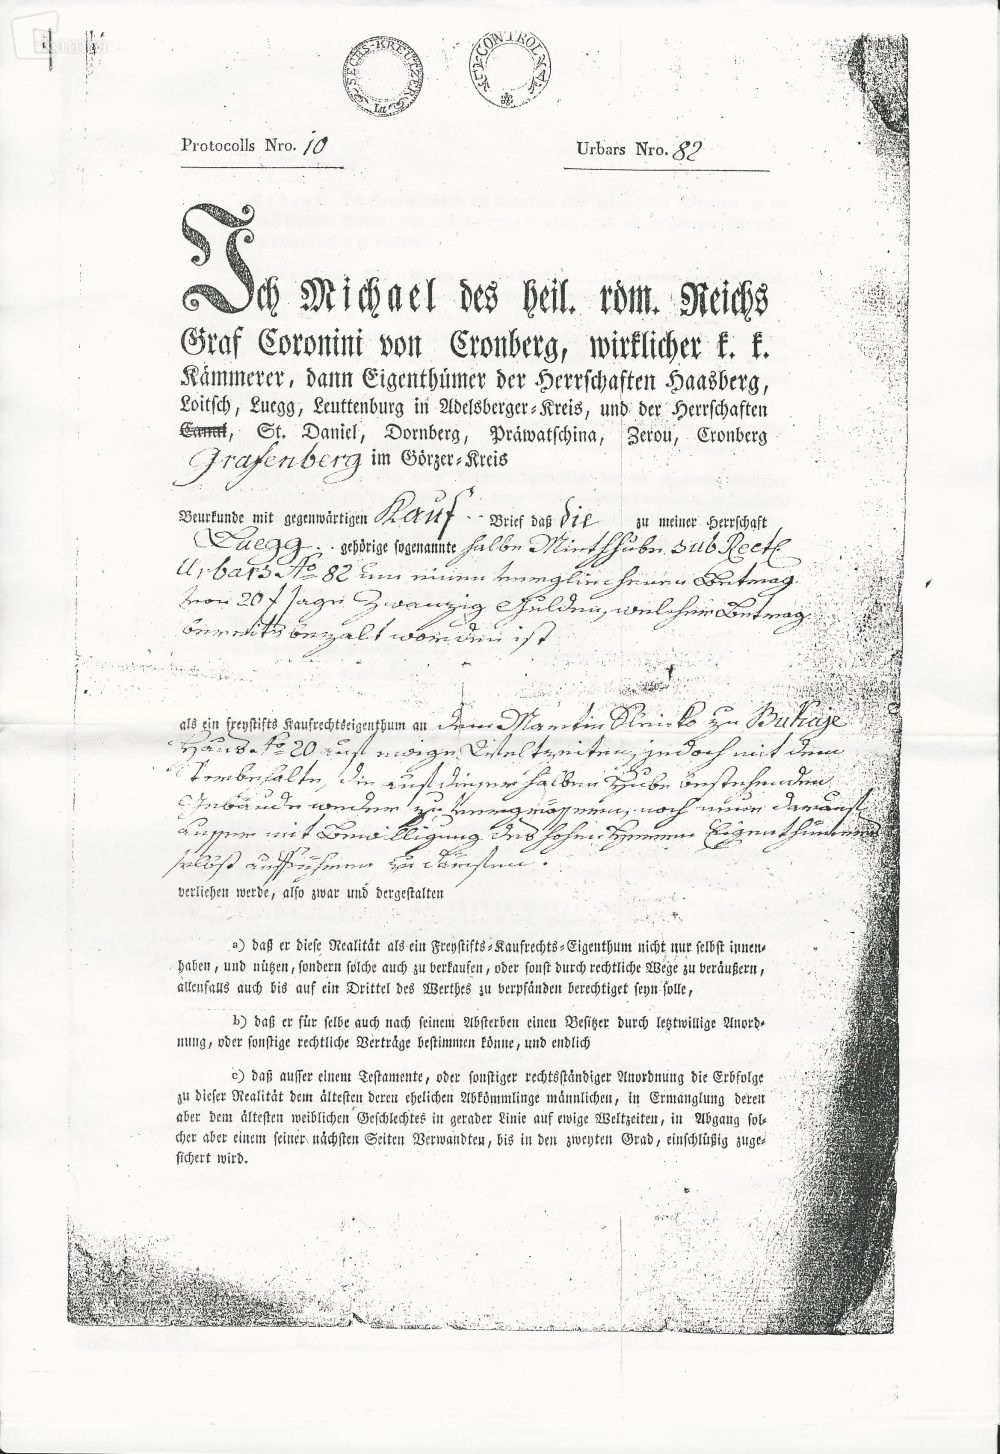 SECHS-KREUTZER
CONTROL
Protocolls Nro. 10
Urbars Nro. 82
Ich Michael des heil. röm. Reichs
Graf Coronini von Cronberg, wirklicher k. k.
Kämmerer, dann Eigenthümer der Herrschaften Haasberg,
Loitsch, Luegg, Leuttenburg in Adelsberger-Kreis, und der Herrschaften
St. Daniel, Dornberg, Präwatschina, Zerou, Cronberg
Grafenberg im Görzer-Kreis
Beurkunde mit gegenwärtigen Kauf - Brief daß die zu meiner Herrschaft
Luegg gehörige sogenannte halbe Mietshube sub Rect.
Urbars No 82 um einen verglichenen Betrag
von 20 f sage Zwanzig Gulden, welcher Betrag
bereits bezalt worden ist
als ein freystifts Kaufrechtseigenthum an dem Martin zu Bukuje
Haus No 20 auf ewige Weltzeiten, jedoch mit dem
Vorbehalte, die auf dieser halben Hube bestehenden
Gebäude weder zu vergrössern, noch neue darauf
ausser mit Bewilligung des hohen Herrn Eigenthümers
selbst aufführen zu dürfen.
verliehen werde, also zwar und dergestalten
a) daß er diese Realität als ein Freystifts-Kaufrechts-Eigenthum nicht nur selbst innen-
haben, und nützen, sondern solche auch zu verkaufen, oder sonst durch rechtliche Wege zu veräußern,
allenfalls auch bis auf ein Drittel des Werthes zu verpfänden berechtiget seyn solle,
b) daß er für selbe auch nach seinem Absterben einen Besitzer durch letztwillige Anord-
nung, oder sonstige rechtliche Verträge bestimmen könne, und endlich
c) daß ausser einem Testamente, oder sonstiger rechtsständiger Anordnung die Erbfolge
zu dieser Realität dem ältesten deren ehelichen Abkömmlinge männlichen, in Ermanglung deren
aber dem ältesten weiblichen Geschlechtes in gerader Linie auf ewige Weltzeiten, in Abgang sol-
cher aber einem seiner nächsten Seiten Verwandten, bis in den zweyten Grad, einschlüßig zuge-
sichert wird.